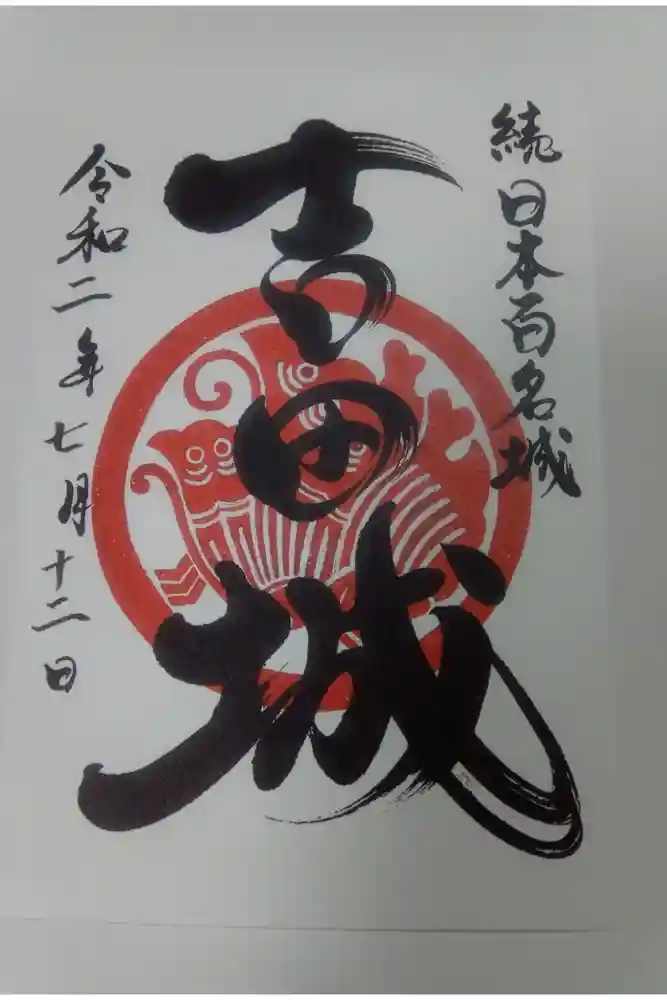 続日本百名城
吉田城
令和二年七月十二日